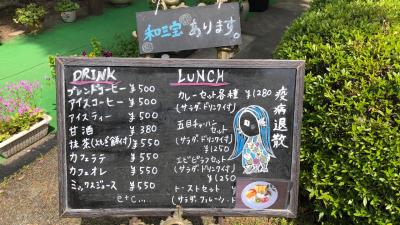 和三宝あります。
DRINK
ブレンドコーヒー ¥500
アイスコーヒー ¥500
アイスティー ¥500
甘酒 ¥380
抹茶(えび餅付) ¥550
カフェラテ ¥550
カフェオレ ¥550
ミックスジュース ¥550
etc...
LUNCH
カレーセット各種 ¥1280
(サラダ、ドリンク付)
五目チャーハン
セット
(サラダ・ドリンク付)
¥1250
エビピラフセット
(サラダ・ドリンク付)
¥1250
トーストセット
(サラダ、フルーツ、ド
疫病退散